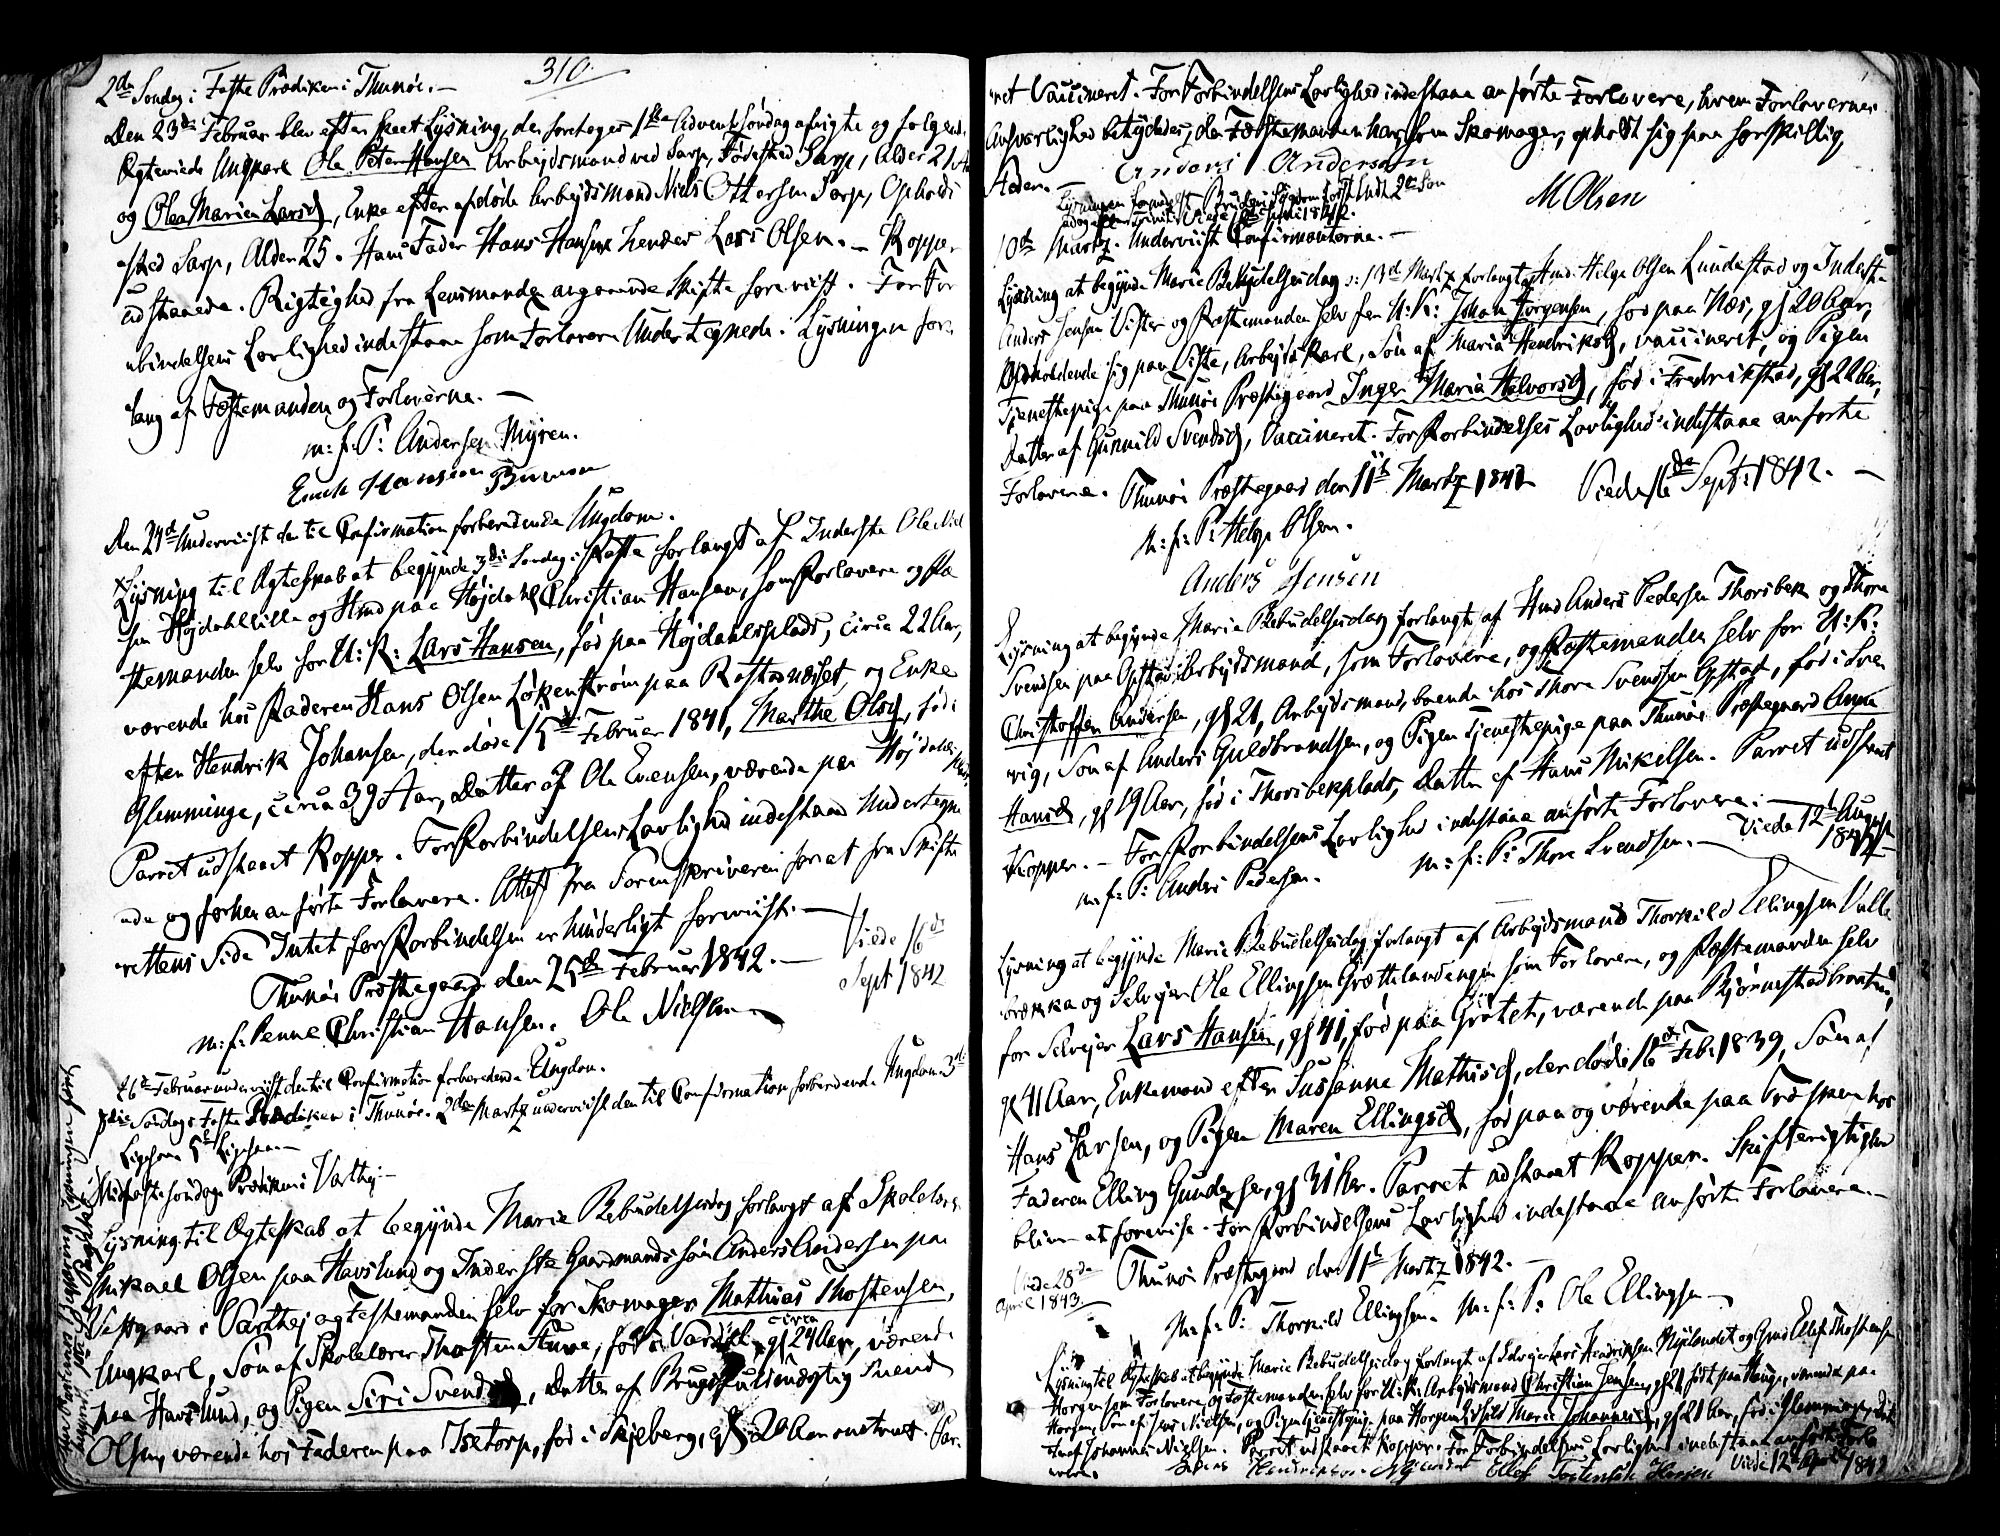 310.
2de Søndag i Faste Prædiken i Thunøe. —
Den 23de Februar blev efter skeet Lysning, der foretoges 1ste Advents Søndag afvigte og følgende
Ægteviede Ungkarl Ole Peter Hansen Arbeydsmand ved Sarp, Fødested Sarp, Alder 21
og Olea Marie Larsd, Enke efter afdøde Arbeydsmand Niels Ottersen Sarp, Opholds
sted Sarp, Alder 25. Hans Fader Hans Hansen hendes Lars Olsen. — Kopper
udstaaede. Rigtighed fra Lensmanden angaaende Skifte foreviist. For For
bindelsens Lovlighed indestaae som Forlovere Undertegnede. Lysningen for
lang af Fæstemanden og Forloverne. —
m: f: P: Andersen Myren.
Erick Hansen
Den 24de Underviist den til Confirmation forberedende Ungdom.
Lysning til Ægteskab at begynde 3die Søndag i Faste forlangt af Inderste Ole Niel
sen Højdahllille og Hmd paa Højdahl Christian Hansen, som Forlovere og Fæ
stemanden selv for U: K: Lars Hansen, fød paa Højdahlsplads, circa 22 Aar,
værende hos Faderen Hans Olsen Løkenstrøm paa Rostadnæsset, og Enke
efter Hendrik Johansen, der døde 15de Februar 1841, Marthe Olsd, fød i
Glemminge, circa 39 Aar, Datter af Ole Evensen, værende paa Højdahls
Parret udstaaet Kopper. For Forbindelsens Lovlighed indestaae Undertegne
de og forhen anførte Forlovere. Attest fra Sorenskriveren for at fra Skifte
rettens Side Intet for Forbindelsen er hinderligt foreviist. —
Thunøe Præstegaard den 25de Februar 1842. —
Viede 16de
Sept 1842
m: f: Penne Christian Hansen. Ole Nielsen
26de Februar underviist den til Confirmation forberedende Ungdom.
3die Søndag i Faste Prædiken i Thunøe. 2den Martz underviist den til Confirmation forberedende Ungdom. 3de
Ligpræ 5te Ligpræ —
Midfastesøndag Prædiken i Varthej —
Lysning til Ægteskab at begynde Marie Bebudelsesdag forlangt af Skolelærer
Mikael Olsen paa Havslund og Inderste Gaardmandssøn Anders Andersen paa
Vestgaard i Varthej og Festemanden selv for Skomager Mathias Thostensen,
Ungkarl, Søn af Skolelærer Thosten, fød i circa 24 Aar, værende
paa Havslund, og Pigen Siri Svendsd, Datter af Svend
Olsen, værende hos Faderen paa Isetorp, fød i Skjeberg, 20 Aar. Par
ret Vaccineret. For Forbindelsens Lovlighed indestaae anførte Forlovere, hvem Forlovernes
Ansvarlighed betydedes, da Fæstemanden har, som Skomager, opholdt sig paa forskiellige
Steder. — Anders Anderssen
M Olsen
Lysningen formedelst Brudens Sygdom først endt 2den Søn
dag efter Trinitatis Viede 1842.
10de Martz. Underviist Confirmanterne. —
Lysning at begynde Marie Bebudelsesdag 13de Martz forlangt af Hmd: Helge Olsen Lundestad og Inderste
Anders Jensen Vister og Fæstemanden selv for U: K: Johan Jørgensen, fød paa Næs, gl 20 Aar,
Opholdende sig paa Viste, Arbeydskarl, Søn af Maria Hendriksd, vaccineret, og Pigen
Tjenestepige paa Thunøe Præstegaard Inger Maria Halvorsd, fød i Fredrikstad, gl 22 Aar,
Datter af Gunnild Svendsd, Vaccineret. For Forbindelses Lovlighed indestaae anførte
Forlovere. Thunøe Præstegaard den 11te Martz 1842. Viede 16de Sept: 1842. —
m: f: P: Helge Olsen.
Anders Jensen
Lysning at begynde Marie Bebudelsesdag forlangt af Hmd Anders Pedersen Thorsbek og Thore
Svendsen paa Opstad Arbeydsmand, som Forlovere, og Fæstemanden selv for U: K:
Christoffer Andersen, gl 21, Arbeydsmand, boende hos Thore Svendsen Opstad, fød i Sver
rig, Søn af Anders Guldbrandsen, og Pigen Tjenestepige paa Thunøe Præstegaard Anne
Hansd, gl 19 Aar, fød i Thorsbekplads, Datter af Hans Mikelsen. Parret udstaaet
Kopper. — For Forbindelsens Lovlighed indestaae anførte Forlovere: — Viede 12te August
1842
m: f: P: Anders Pedersen. m: f: P: Thore Svendsen. —
Lysning at begynde Marie Bebudelsesdag forlangt af Arbeydsmand Thorkild Ellingsen Valle
brække og Selvejer Ole Ellingsen Grøttelandengen som Forlovere, og Fæstemanden selv
for Selvejer Lars Hansen, gl 41, fød paa Grøtet, værende paa Bjørnestadbraaten,
gl 41 Aar, Enkemand efter Susanne Mathisd, der døde 16de Feb: 1839, Søn af
Hans Larsen, og Pigen Maren Ellingsd, fød paa og værende paa hos
Faderen Elling Gundersen, gl 31 Aar. Parret udstaaet Kopper. Skifterigtighed
bliver at forevise. For Forbindelsens Lovlighed indestaae anførte Forlovere. —
Viede 28de
April 1843
Thunøe Præstegaard den 11te Martz 1842. —
m: f: P: Thorkild Ellingsen. m: f: P: Ole Ellingsen —
Lysning til Ægteskab at begynde Marie Bebudelsesdag forlangt af Selvejer Lars Hendriksen Nylandet og Gmd Ellef Thostensen
Horgen som Forlovere og Fæstemanden selv for U: K: Arbeydsmand Christian Jensen, gl 21, fød paa Hauge, værende paa
Horgen, Søn af Jens Nielsen, og Pigen Tjenestepige paa Horgen Marie Johannesd, gl 21 Aar, fød i Glemminge, Dat
ter af Johannes Nielsen. Parret udstaaet Kopper. For Forbindelsens Lovlighed indestaae anførte Forlo
vere. Hendriksen Nylandet Ellef Tostensen Horgen Viede 12te April 1842